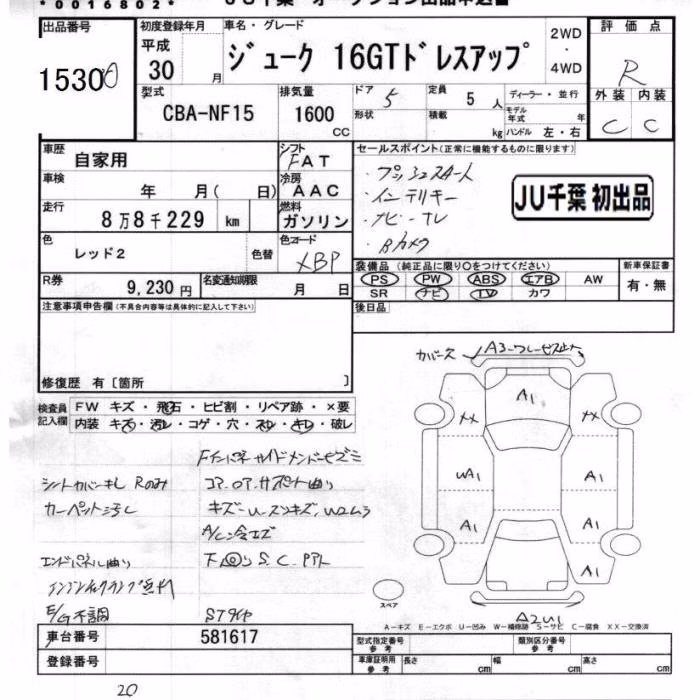 *0016802*
出品番号
15300
初度登録年月
平成
30 月
車名・グレード
ジューク 16GTドレスアップ
2WD
・
4WD
評価点
R
外装 内装
C C
型式
CBA-NF15
排気量
1600
CC
ドア 5
形状
定員 5 人
積載 kg
ディーラー・並行
モデル年式 年
ハンドル 左・右
車歴
自家用
シフト
FAT
車検
年 月( 日)
冷房
AAC
走行
8万8千229 km
燃料
ガソリン
色
レッド2
色替
色コード
XBP
R券
9,230 円
名変通知期限
月 日
セールスポイント(正常に機能するものに限ります)
・プッシュスタート
・インテリキー
・ナビ-TV
・Bカメラ
JU千葉 初出品
装備品 (純正品に限り○をつけてください)
PS PW ABS エアB AW
SR ナビ TV カワ
新車保証書
有・無
後日品
注意事項申告欄(不具合内容等は具体的に記入して下さい)
修復歴 有〔箇所 〕
検査員記入欄
FW キズ・飛石・ヒビ割・リペア跡・×要
内装 キズ・汚レ・コゲ・穴・スレ・キレ・破レ
シートカバーキレ Rのみ
コア、ロア、サポート曲り
カーペット汚レ
エンドパネル曲り
E/G不調
STタイヤ
カバーズレ
A1
XX
XX
UA1
A1
A1
A1
A1
A2U1
スペア
A-キズ E-エクボ U-凹み W-補修跡 S-サビ C-腐食 XX-交換済
車台番号
581617
登録番号
型式指定番号
参考
類別区分番号
参考
車庫証明用
参考
長さ cm
幅 cm
高さ cm
20